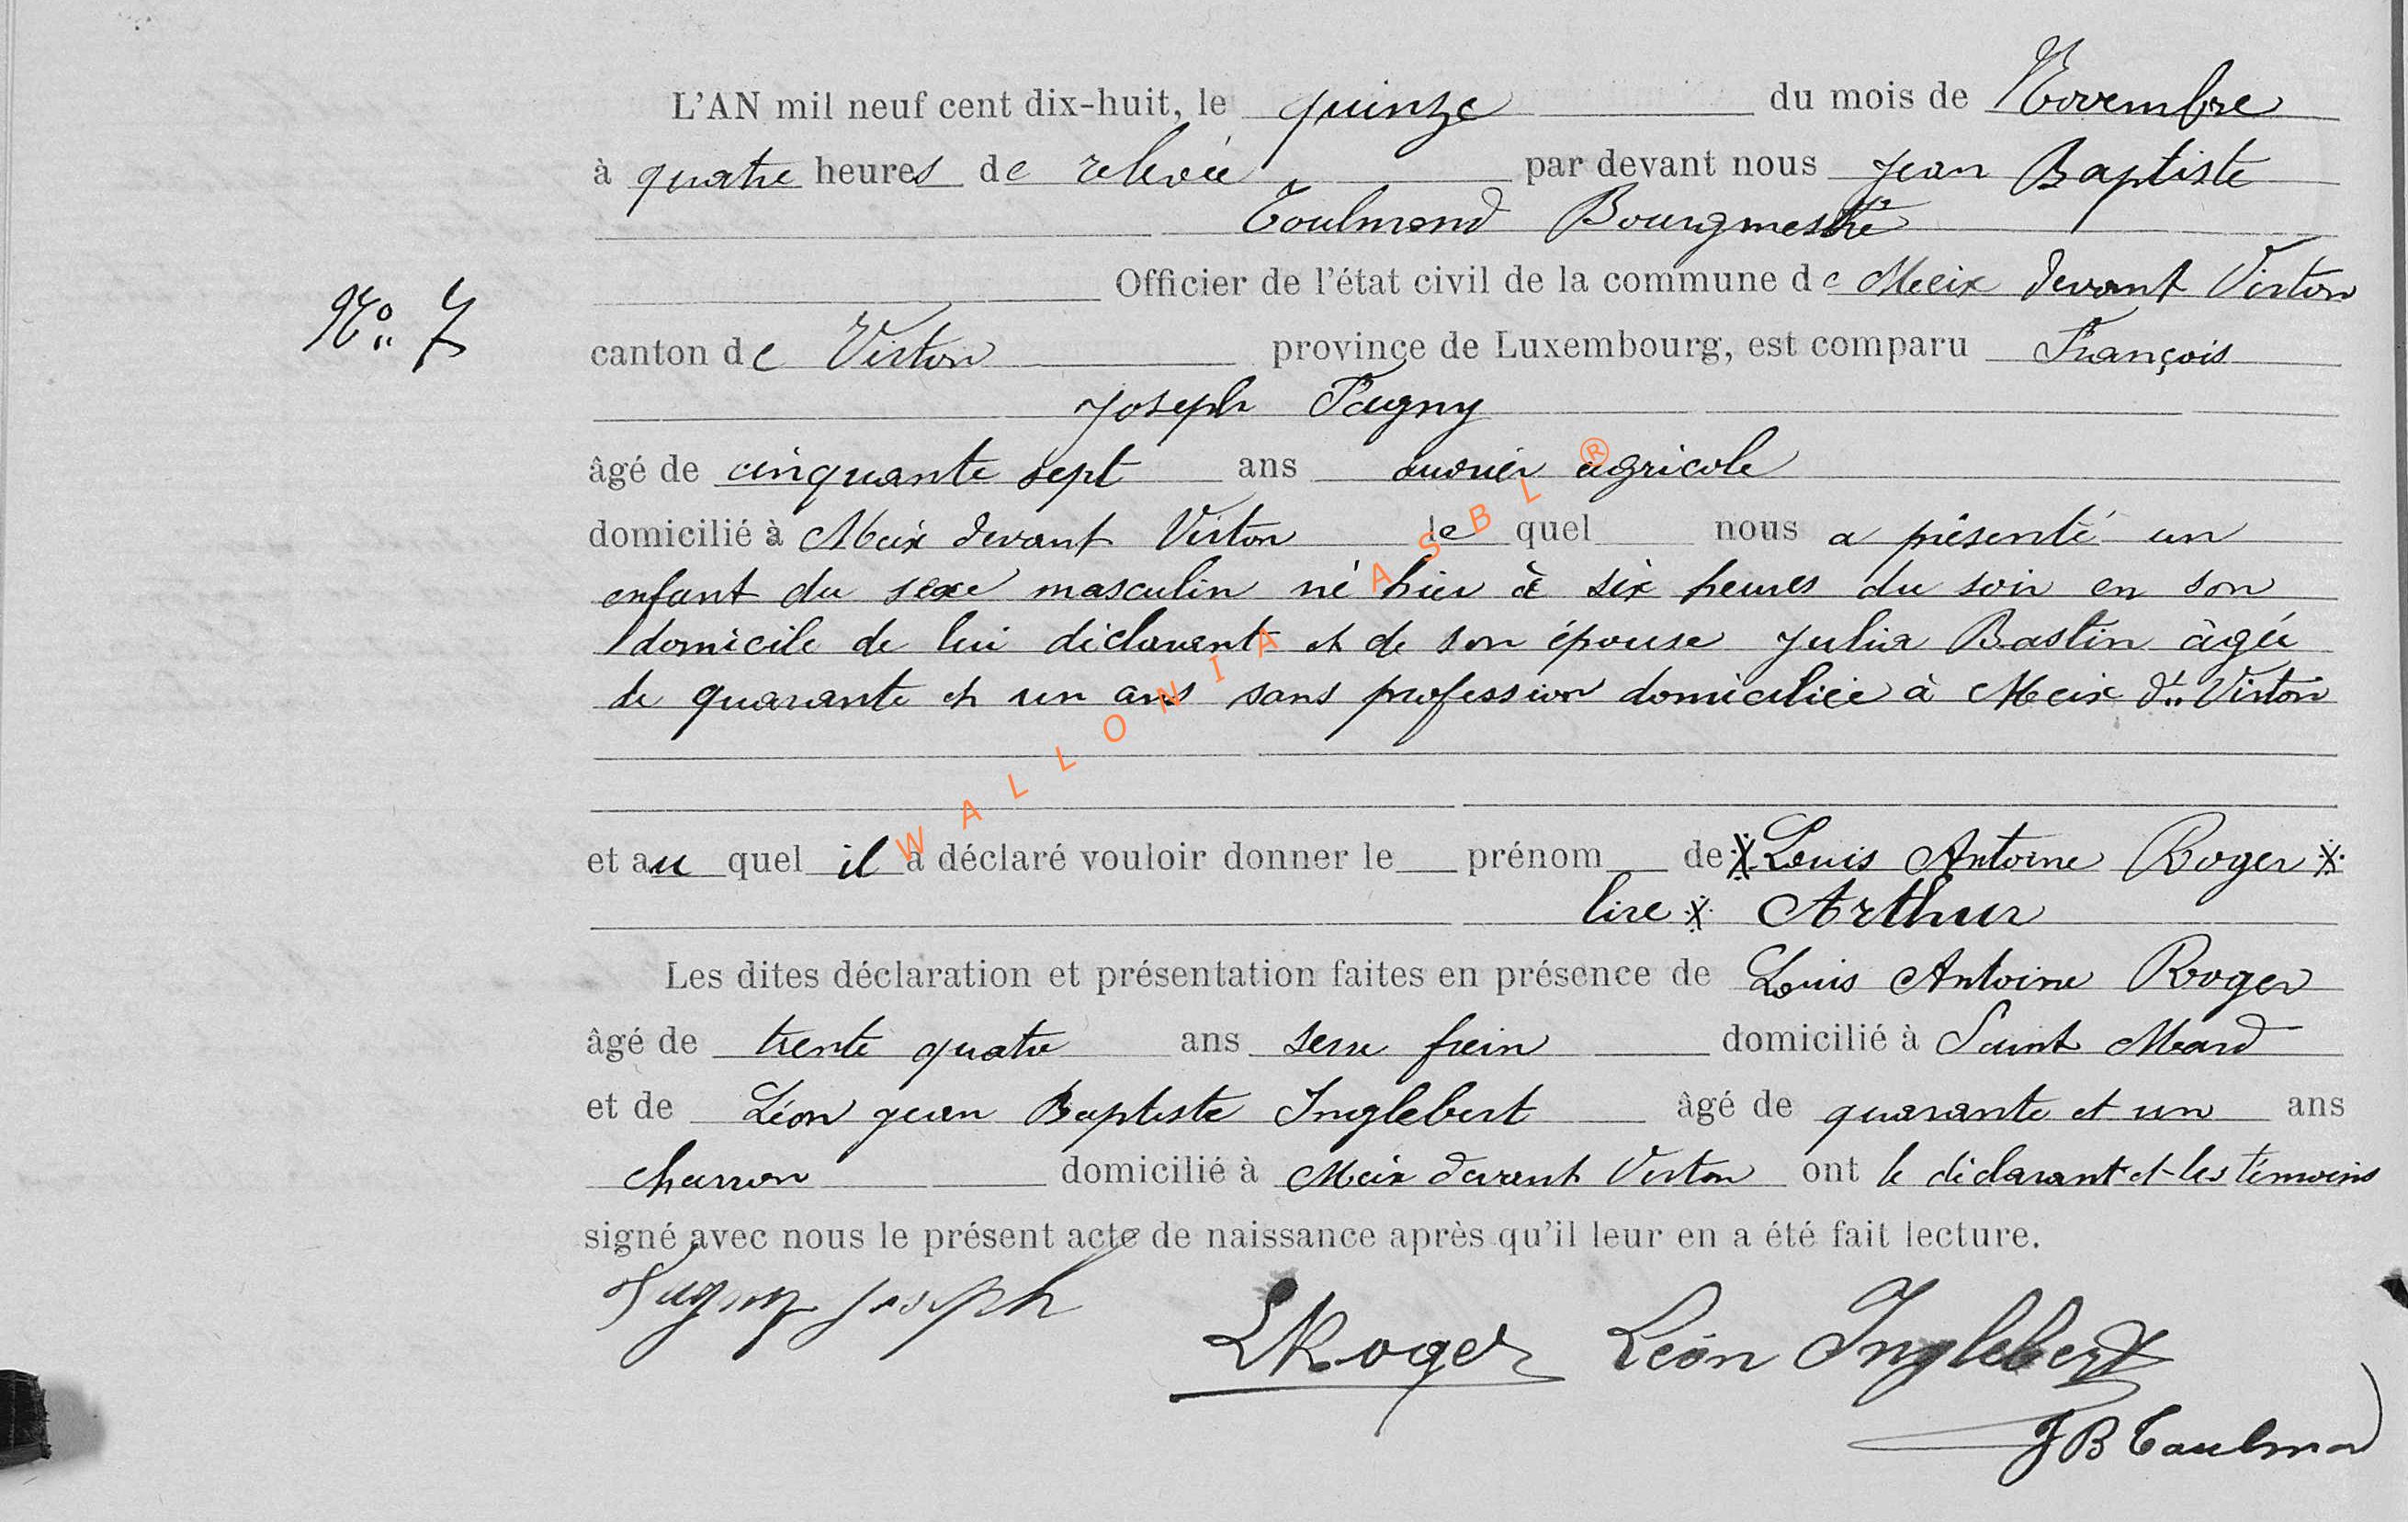 L'AN mil neuf cent dix-huit, le quinze du mois de Novembre
à quatre heures de relevée par devant nous Jean Baptiste
Toulmond Bourgmestre
Officier de l'état civil de la commune de Meix devant Virton
N° 7
canton de Virton province de Luxembourg, est comparu François
Joseph Fagny
âgé de cinquante sept ans ouvrier agricole
domicilié à Meix devant Virton lequel nous a présenté un
enfant du sexe masculin né hier à six heures du soir en son
domicile de lui déclarant et de son épouse Julia Bastin âgée
de quarante et un ans sans profession domiciliée à Meix dt Virton
WALLONIA ASBL ®
et au quel il a déclaré vouloir donner le prénom de X Louis Antoine Roger X
lire X Arthur
Les dites déclaration et présentation faites en présence de Louis Antoine Roger
âgé de trente quatre ans serre frein domicilié à Saint Mard
et de Léon Jean Baptiste Inglebert âgé de quarante et un ans
charron domicilié à Meix devant Virton ont le déclarant et les témoins
signé avec nous le présent acte de naissance après qu'il leur en a été fait lecture.
Fagny Joseph
LRoger Léon Inglebert
JB Toulmond